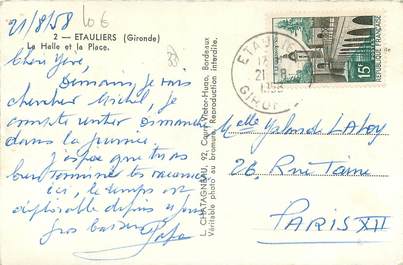 21/8/58
10 €
2 – ETAULIERS (Gironde)
La Halle et la Place.
Demain, je vais
chercher Michel, je
compte rentrer Dimanche
dans la journée.
J'espère que tu as
bien terminé tes vacances
ici, le temps est
déplorable depuis
gros baisers
Papa
L. CHATAGNEAU, 92, Cours Victor-Hugo, Bordeaux
Véritable photo au bromure. Reproduction interdite.
ETAULIERS
21
1958
GIRONDE
15F
REPUBLIQUE FRANÇAISE
Melle Yolande
26, Rue Taine
PARIS XII